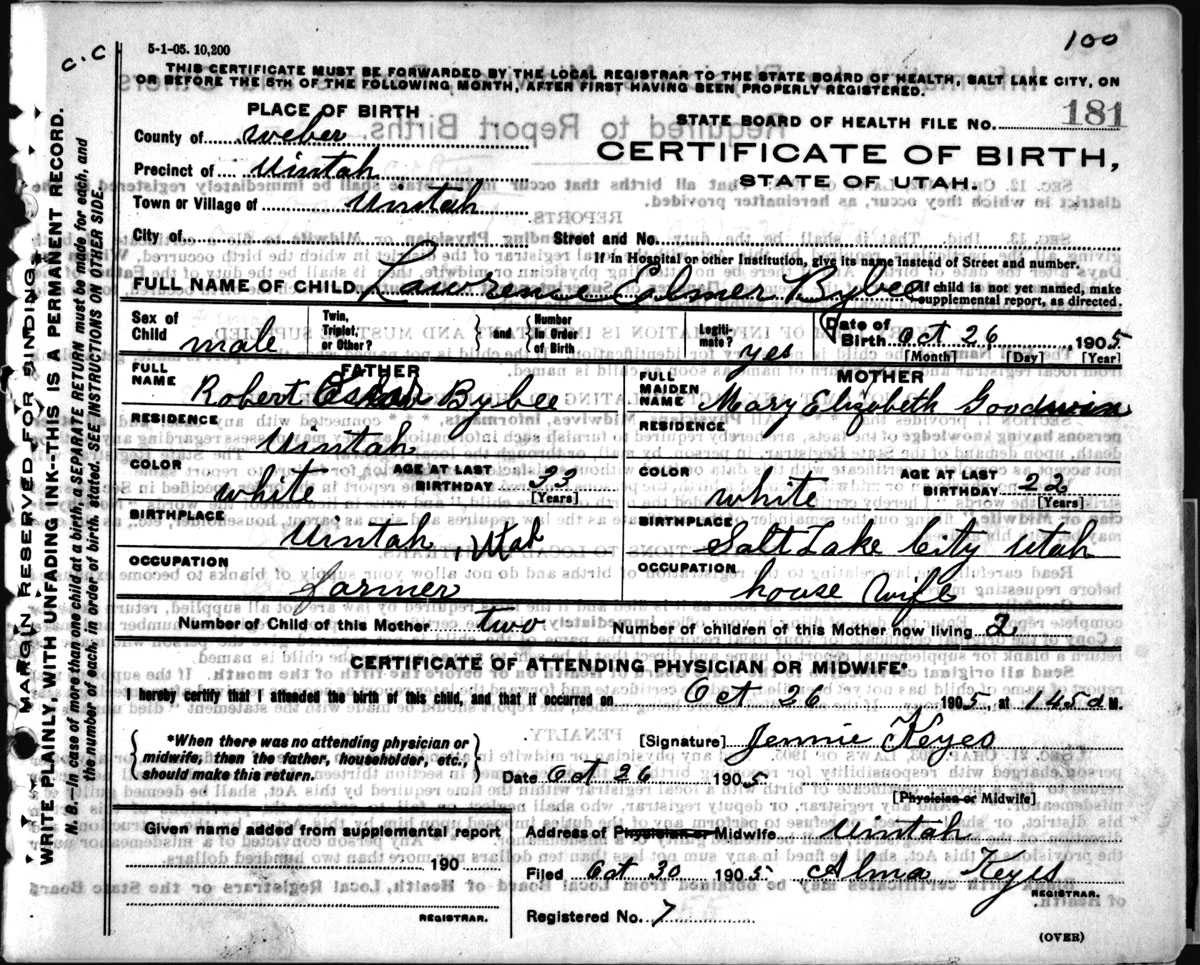 100
5-1-05. 10,200
c.c
THIS CERTIFICATE MUST BE FORWARDED BY THE LOCAL REGISTRAR TO THE STATE BOARD OF HEALTH, SALT LAKE CITY, ON
OR BEFORE THE 5TH OF THE FOLLOWING MONTH, AFTER FIRST HAVING BEEN PROPERLY REGISTERED.
PLACE OF BIRTH
STATE BOARD OF HEALTH FILE NO. 181
County of Weber
CERTIFICATE OF BIRTH,
Precinct of Uintah
STATE OF UTAH.
Town or Village of Uintah
City of Street and No.
If in Hospital or other Institution, give its name instead of Street and number.
FULL NAME OF CHILD Lawrence Elmer Bybee
If child is not yet named, make
supplemental report, as directed.
Sex of Child male
Twin, Triplet, or Other?
and
Number in Order of Birth
Legiti- mate? yes
Date of Birth Oct 26, 1905
[Month] [Day] [Year]
FATHER
FULL NAME Robert Bybee
MOTHER
FULL MAIDEN NAME Mary Elizabeth Goodwin
RESIDENCE Uintah
RESIDENCE
COLOR white AGE AT LAST BIRTHDAY 33 [Years]
COLOR white AGE AT LAST BIRTHDAY 22 [Years]
BIRTHPLACE Uintah, Utah
BIRTHPLACE Salt Lake City Utah
OCCUPATION farmer
OCCUPATION house wife
Number of Child of this Mother two Number of children of this Mother now living 2
CERTIFICATE OF ATTENDING PHYSICIAN OR MIDWIFE*
I hereby certify that I attended the birth of this child, and that it occurred on Oct 26 1905, at 145 a M.
*When there was no attending physician or
midwife, then the father, householder, etc.,
should make this return.
[Signature] Jennie Keyes
Date Oct 26 1905
[Physician or Midwife]
Given name added from supplemental report
190
REGISTRAR.
Address of Physician or Midwife Uintah
Filed Oct 30 1905 Alma Keyes
REGISTRAR.
Registered No. 7
(OVER)
MARGIN RESERVED FOR BINDING
WRITE PLAINLY, WITH UNFADING INK--THIS IS A PERMANENT RECORD.
N. B.--In case of more than one child at a birth, a SEPARATE RETURN must be made for each, and
the number of each, in order of birth, stated. SEE INSTRUCTIONS ON OTHER SIDE.